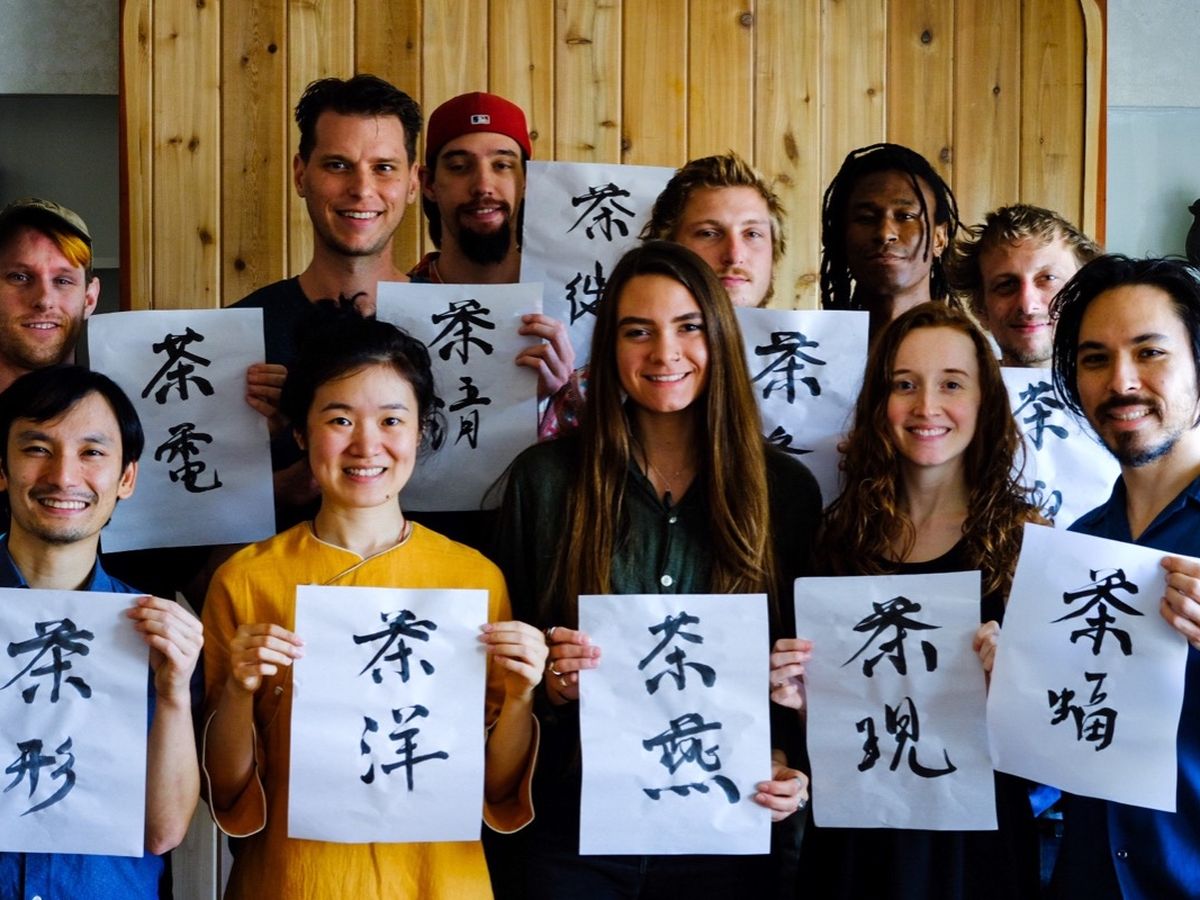 茶
茶
茶
電
茶
茶
茶
形
茶
洋
茶
燕
茶
現
茶
蝠